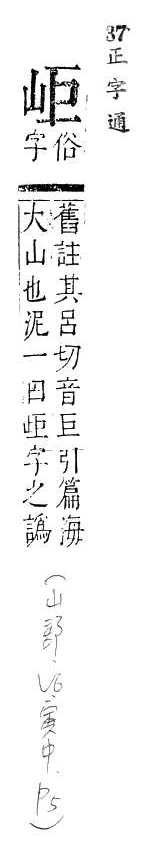 87
正字通
岠
俗字
舊註其呂切音巨引篇海
大山也泥一曰岠字之譌
(山部.V6.寅中.P5)